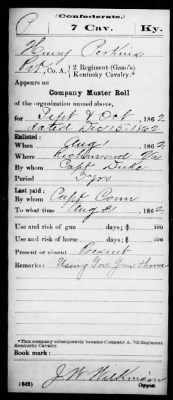 (Confederate.)
P 7 Cav. Ky.
Henry Perkins
Pvt, Co. A, 2 Regiment (Gano's)
Kentucky Cavalry.*
Appears on
Company Muster Roll
of the organization named above,
for Sept & Oct, 1862
dated Dec 15, 1862
Enlisted:
When Aug, 1862
Where Richmond
By whom Capt
Period 3 yrs
Last paid:
By whom Capt Conn
To what time Aug 31, 1862
Use and risk of gun days; $ 100
Use and risk of horse days; $ 100
Present or absent Present
Remarks: Using
*This company subsequently became Company A, 7th Regiment
Kentucky Cavalry.
Book mark:
(642) J. W.
Copyist.